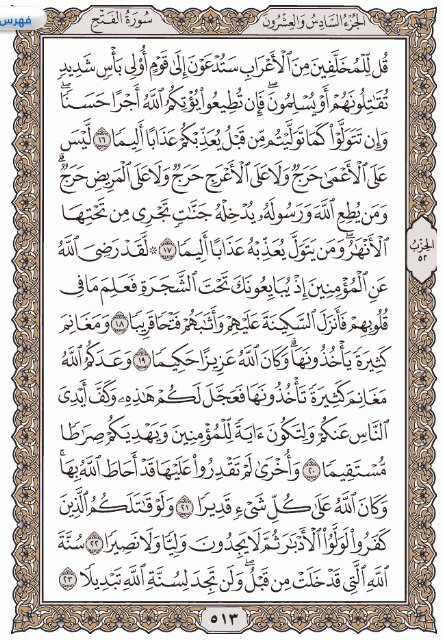 فهرس
سُورَةُ الفَتْحِ
الجُزْءُ السَّادِسُ وَالعِشْرُونَ
قُل لِّلْمُخَلَّفِينَ مِنَ ٱلْأَعْرَابِ سَتُدْعَوْنَ إِلَىٰ قَوْمٍ أُو۟لِى بَأْسٍ شَدِيدٍ
تُقَـٰتِلُونَهُمْ أَوْ يُسْلِمُونَ ۖ فَإِن تُطِيعُوا۟ يُؤْتِكُمُ ٱللَّهُ أَجْرًا حَسَنًا ۖ
وَإِن تَتَوَلَّوْا۟ كَمَا تَوَلَّيْتُم مِّن قَبْلُ يُعَذِّبْكُمْ عَذَابًا أَلِيمًا ١٦ لَّيْسَ
عَلَى ٱلْأَعْمَىٰ حَرَجٌ وَلَا عَلَى ٱلْأَعْرَجِ حَرَجٌ وَلَا عَلَى ٱلْمَرِيضِ حَرَجٌ ۗ
وَمَن يُطِعِ ٱللَّهَ وَرَسُولَهُۥ يُدْخِلْهُ جَنَّـٰتٍ تَجْرِى مِن تَحْتِهَا
ٱلْأَنْهَـٰرُ ۖ وَمَن يَتَوَلَّ يُعَذِّبْهُ عَذَابًا أَلِيمًا ١٧ ۞ لَّقَدْ رَضِىَ ٱللَّهُ
عَنِ ٱلْمُؤْمِنِينَ إِذْ يُبَايِعُونَكَ تَحْتَ ٱلشَّجَرَةِ فَعَلِمَ مَا فِى
قُلُوبِهِمْ فَأَنزَلَ ٱلسَّكِينَةَ عَلَيْهِمْ وَأَثَـٰبَهُمْ فَتْحًا قَرِيبًا ١٨ وَمَغَانِمَ
كَثِيرَةً يَأْخُذُونَهَا ۗ وَكَانَ ٱللَّهُ عَزِيزًا حَكِيمًا ١٩ وَعَدَكُمُ ٱللَّهُ
مَغَانِمَ كَثِيرَةً تَأْخُذُونَهَا فَعَجَّلَ لَكُمْ هَـٰذِهِۦ وَكَفَّ أَيْدِىَ
ٱلنَّاسِ عَنكُمْ وَلِتَكُونَ ءَايَةً لِّلْمُؤْمِنِينَ وَيَهْدِيَكُمْ صِرَٰطًا
مُّسْتَقِيمًا ٢٠ وَأُخْرَىٰ لَمْ تَقْدِرُوا۟ عَلَيْهَا قَدْ أَحَاطَ ٱللَّهُ بِهَا ۚ
وَكَانَ ٱللَّهُ عَلَىٰ كُلِّ شَىْءٍ قَدِيرًا ٢١ وَلَوْ قَـٰتَلَكُمُ ٱلَّذِينَ
كَفَرُوا۟ لَوَلَّوُا۟ ٱلْأَدْبَـٰرَ ثُمَّ لَا يَجِدُونَ وَلِيًّا وَلَا نَصِيرًا ٢٢ سُنَّةَ
ٱللَّهِ ٱلَّتِى قَدْ خَلَتْ مِن قَبْلُ ۖ وَلَن تَجِدَ لِسُنَّةِ ٱللَّهِ تَبْدِيلًا ٢٣
الحِزْبُ
٥٢
٥١٣